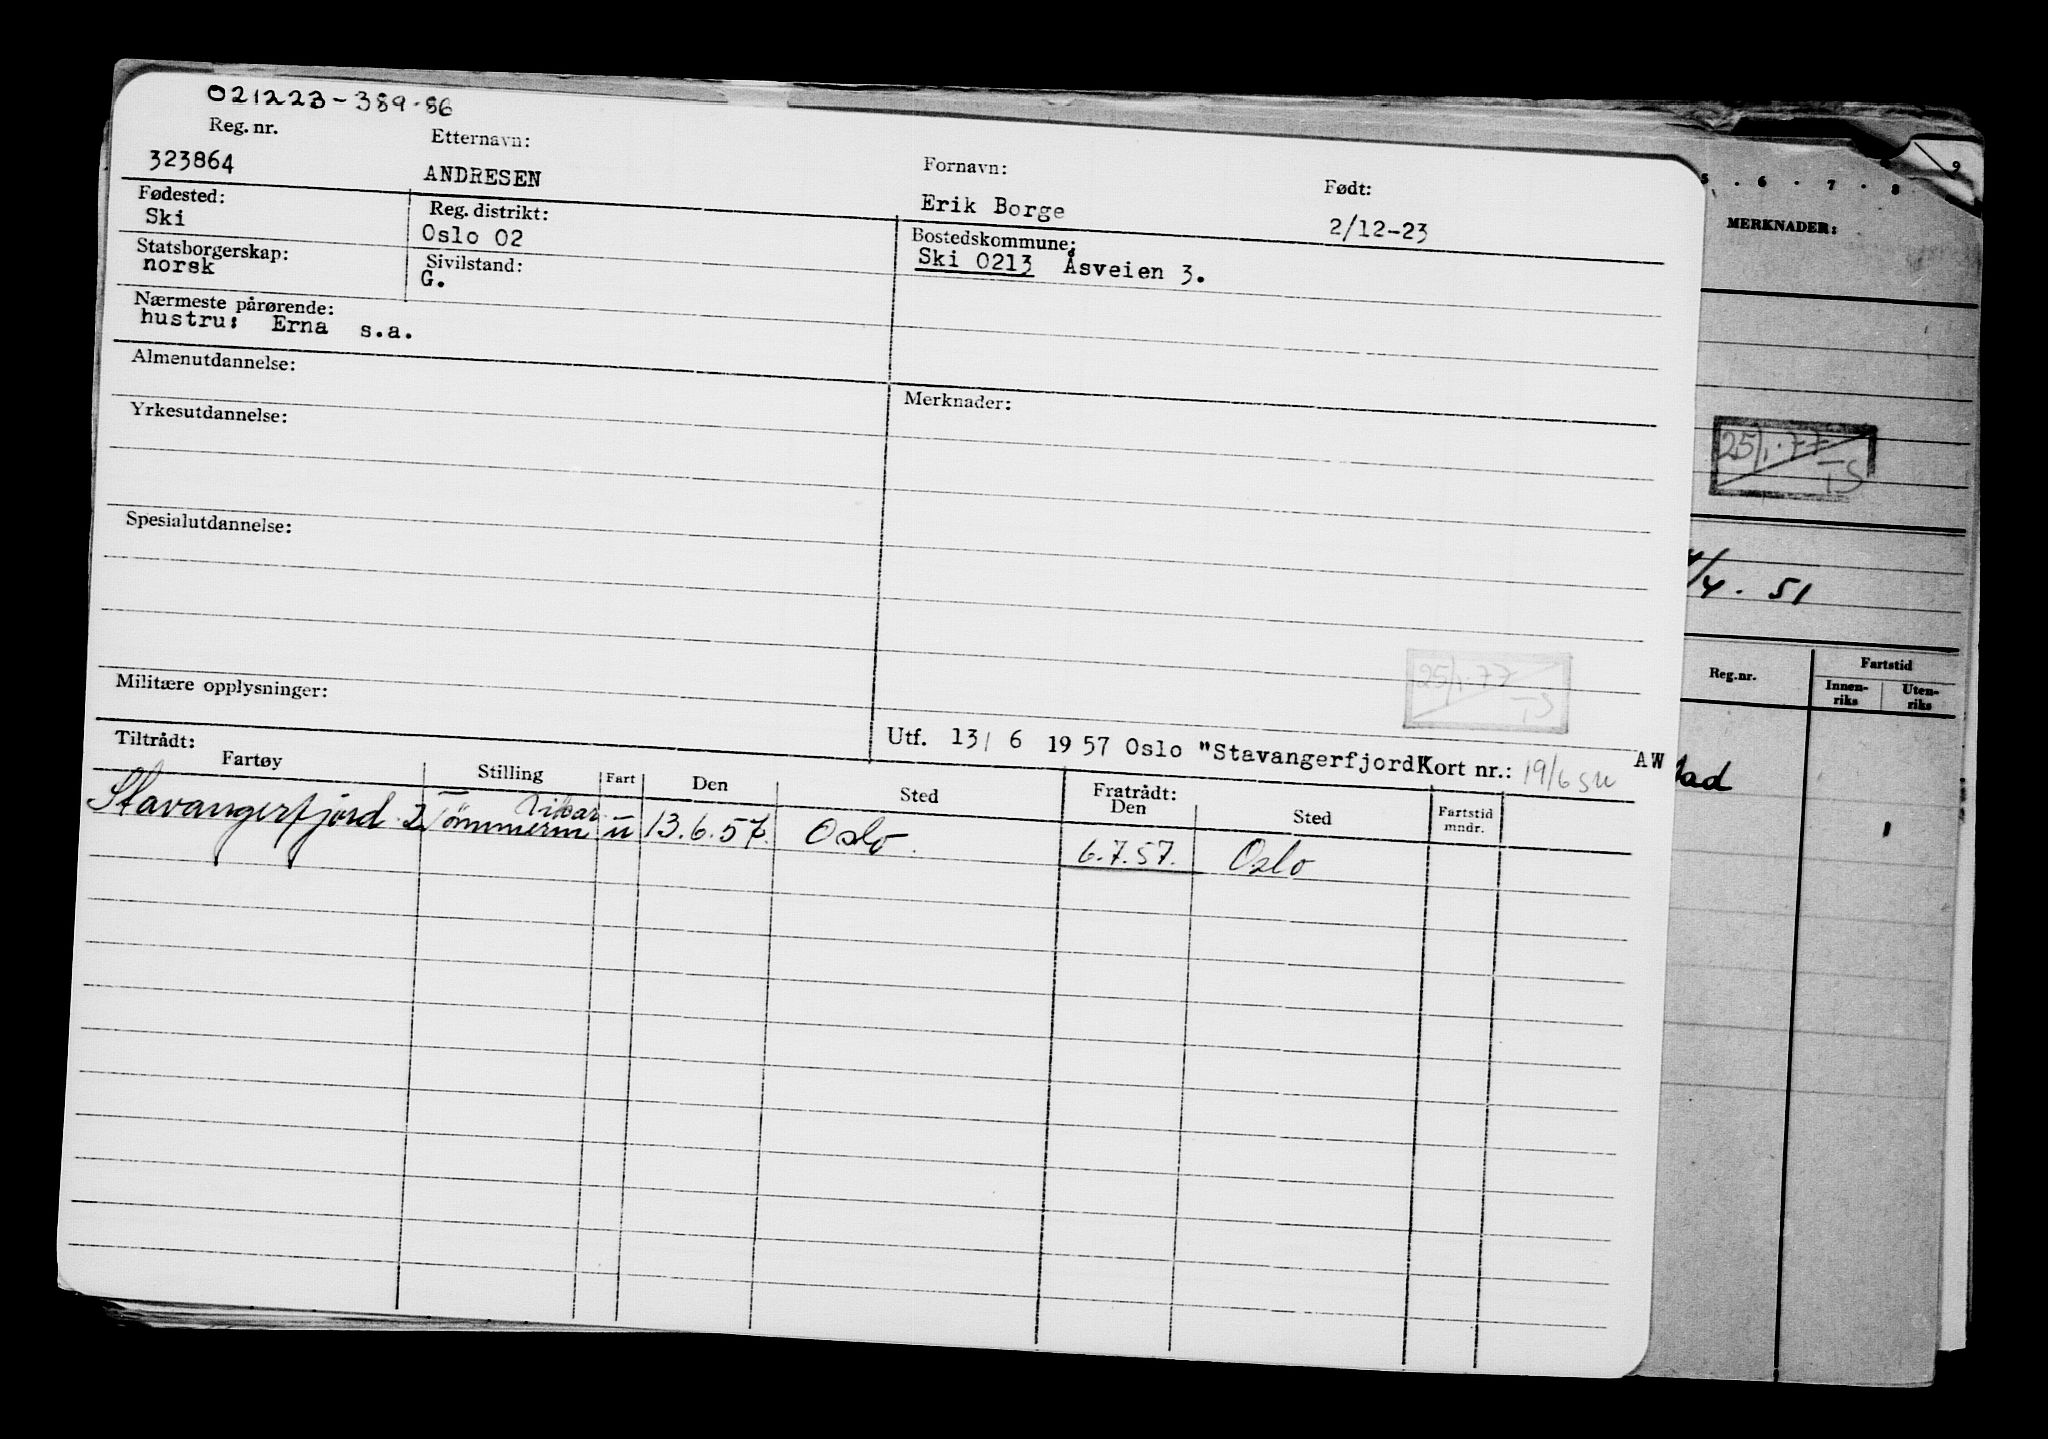 021223-389.86
Reg. nr. Etternavn: Fornavn: Født:
323864 ANDRESEN Erik Borge 2/12-23
Fødested: Reg. distrikt: Bostedskommune:
Ski Oslo 02 Ski 0213 Åsveien 3.
Statsborgerskap: Sivilstand:
norsk G.
Nærmeste pårørende:
hustru: Erna s.a.
Almenutdannelse: Merknader:
Yrkesutdannelse:
Spesialutdannelse:
25/1.77 TS
Militære opplysninger:
Utf. 13/ 6 1957 Oslo "Stavangerfjord Kort nr.: 19/6 AW
Tiltrådt: Fratrådt:
Fartøy Stilling Fart Den Sted Den Sted Fartstid mndr.
Stavangerfjord 2 Tömmerm u 13.6.57. Oslo. 6.7.57. Oslo
5 . 6 . 7 . 8 9
MERKNADER:
25/1.77 TS
/4. 51
Reg.nr. Fartstid
Innen-riks Uten-riks